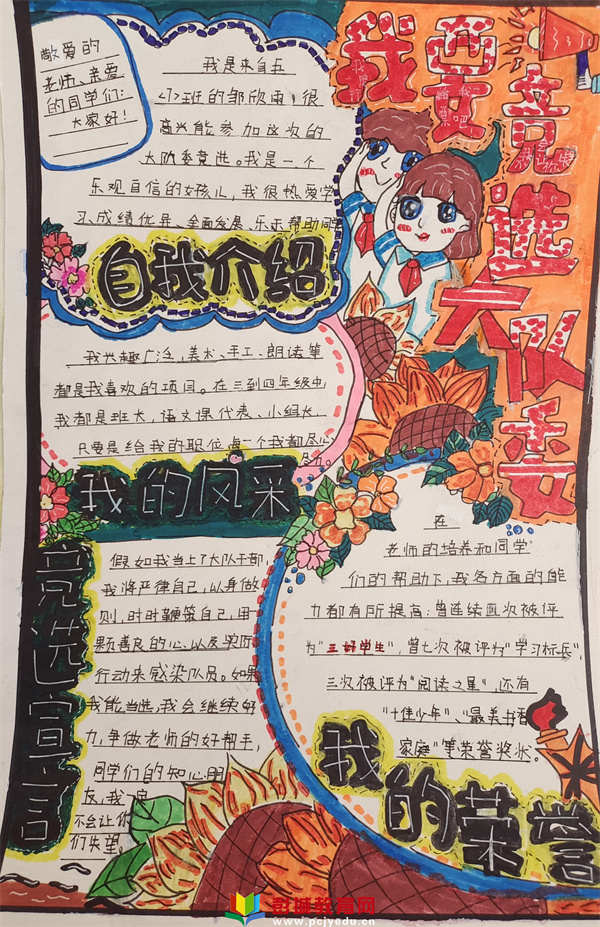 我要竞选大队委
敬爱的
老师、亲爱
的同学们：
大家好！
我是来自五
<7>班的邹欣雨，很
高兴能参加这次的
大队委竞选。我是一个
乐观自信的女孩儿，我很热爱学
习、成绩优异、全面发展、乐于帮助同学
自我介绍
我兴趣广泛，美术、手工、朗读等
都是我喜欢的项目。在三到四年级中
我都是班长，语文课代表、小组长，
只要是给我的职位每一个我都尽心
尽力。
我的风采
竞选宣言
假如我当上了大队干部，
我将严律自己，以身做
则，时时鞭策自己，用
颗善良的心，以及实际
行动来感染队员。如果
我能当选，我会继续努
力，争做老师的好帮手，
同学们的知心朋
友，我
不会让你
们失望。
在
老师的培养和同学
们的帮助下，我各方面的能
力都有所提高：曾连续五次被评
为“三好学生”，曾七次被评为“学习标兵”，
三次被评为“阅读之星”，还有
“十佳少年”、“最美书香
家庭”等荣誉奖状。
我的荣誉
彭城教育网
www.pcjyedu.cn